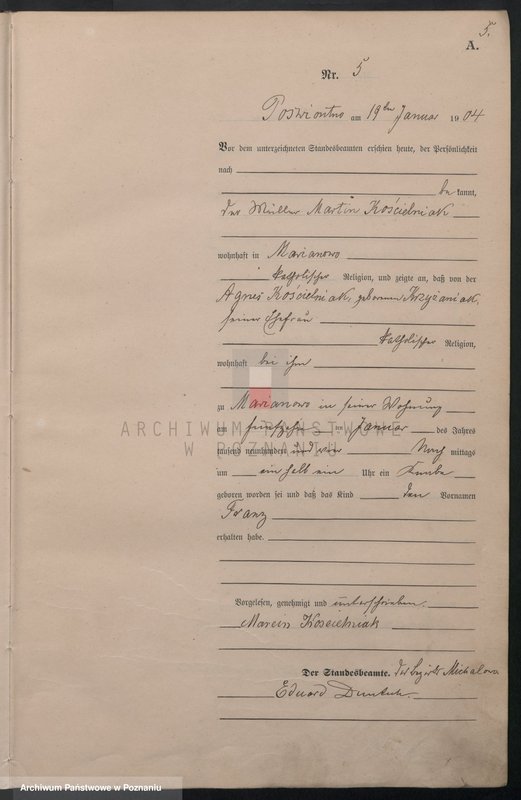 5.
A.
Nr. 5
am 19ten Januar 1904
Vor dem unterzeichneten Standesbeamten erschien heute, der Persönlichkeit
nach
be kannt,
der Müller Martin Kościelniak
wohnhaft in Marianowo
katholischer Religion, und zeigte an, daß von der
Agnes Kościelniak, geborenen Krzyżaniak,
seiner Ehefrau
katholischer Religion,
wohnhaft bei ihm
zu Marianowo in seiner Wohnung
am fünfzehn ten Januar des Jahres
tausend neunhundert und vier Nach mittags
um ein halb ein Uhr ein Knabe
geboren worden sei und daß das Kind den Vornamen
Franz
erhalten habe.
Vorgelesen, genehmigt und unterschrieben.
Marcin Kościelniak
Der Standesbeamte. des Bezirks
Eduard
ARCHIWUM PAŃSTWOWE
W POZNANIU
Archiwum Państwowe w Poznaniu